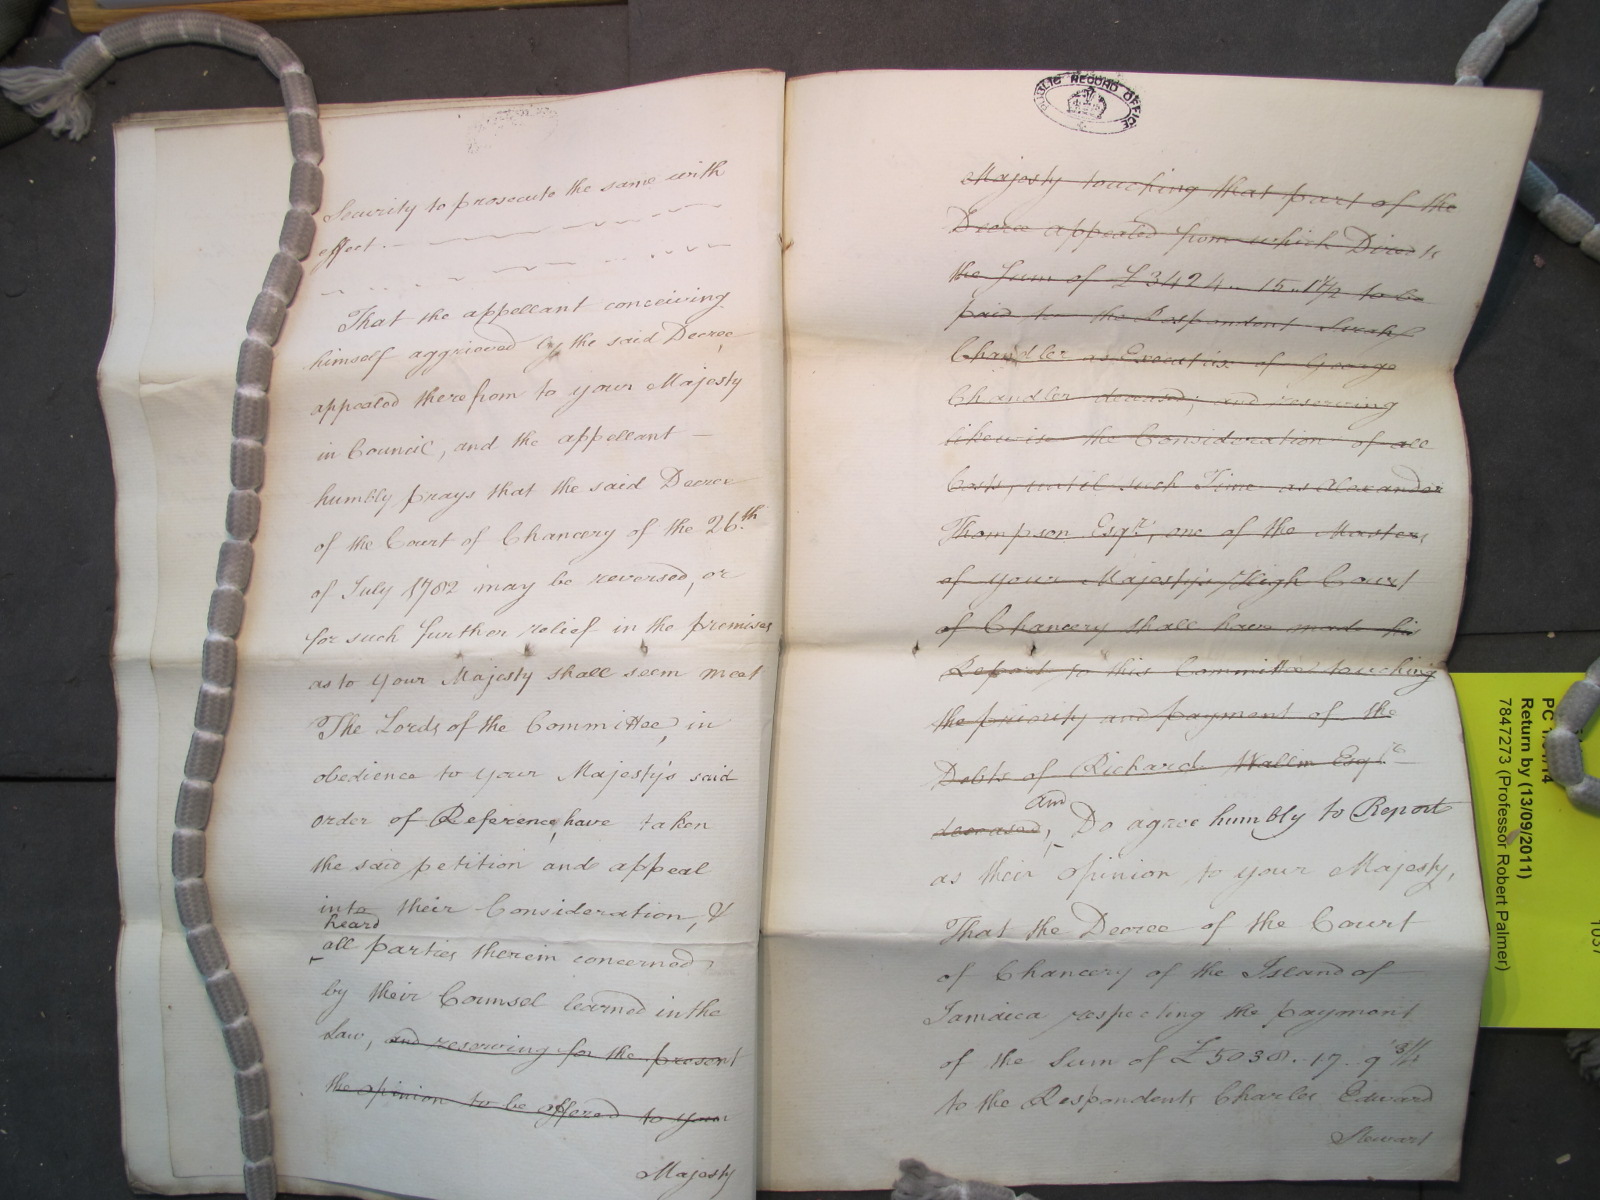 Security to prosecute the same with
effect.
That the appellant conceiving
himself aggrieved by the said Decree,
appealed therefrom to your Majesty
in Council, and the appellant
humbly prays that the said Decree
of the Court of Chancery of the 26.th
of July 1782 may be reversed, or
for such further relief in the premises
as to your Majesty shall seem meet
The Lords of the Committee, in
obedience to your Majesty's said
order of Reference, have taken
the said petition and appeal
into their Consideration, &
heard
all parties therein concerned
by their Counsel learned in the
Law, and reserving for the present
the opinion to be offered to your
Majesty
PUBLIC RECORD OFFICE
Majesty touching that part of the
Decree appealed from which Directs
the Sum of £3424.. 15..1½ to be
paid to the Respondent Sarah
Chandler as Executrix of George
Chandler deceased; and reserving
likewise the Consideration of all
Costs, until such Time as Alexander
Thompson Esqr., one of the Masters
of your Majesty's High Court
of Chancery shall have made his
Report to this Committee touching
the priority and payment of the
Debts of Richard Wallin Esqr.
and
deceased, Do agree humbly to Report
as their opinion to your Majesty,
That the Decree of the Court
of Chancery of the Island of
Jamaica respecting the payment
of the Sum of £5038. 17. 9¾
to the Respondents Charles Edward
Stewart
Return by (13/09/2011)
7847273 (Professor Robert Palmer)